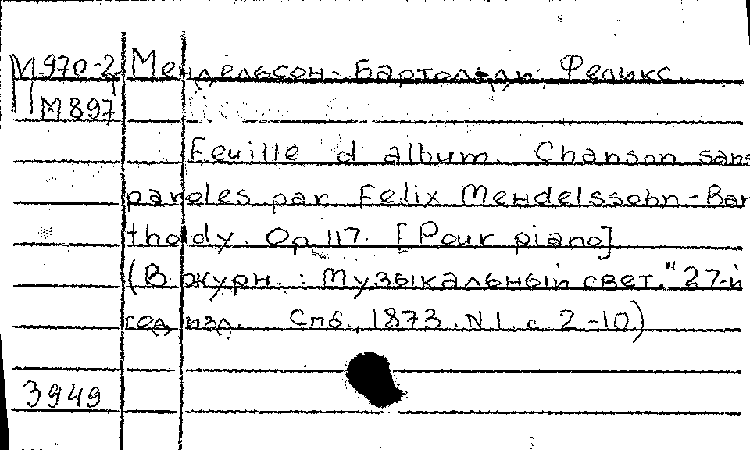 М970-2 Мендельсон-Бартольди, Феликс.
М897
Feuille d'album. Chanson sans
paroles par Felix Mendelssohn-Bar
tholdy. Op. 117. [Pour piano]
(В журн.: Музыкальный свет." 27-й
год изд. Спб., 1873. N 1. с. 2-10)
3949